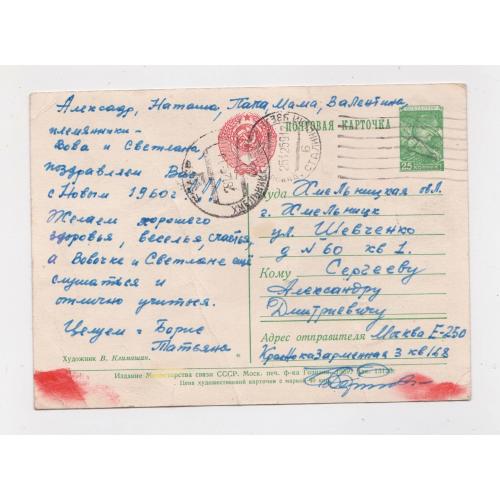 Александр, Наташа, Папа, Мама, Валентина,
племянники-
Вова и Светлана
поздравляем Вас
с Новым 1960г.
Желаем хорошего
здоровья, веселья, счастья,
а Вовочке и Светлане ещё
слушаться и
отлично учиться.
Целуем: Борис
Татьяна
Художник В. Климашин.
ПОЧТОВАЯ КАРТОЧКА
25
Куда Хмельницкая обл.
г. Хмельницк
ул. Шевченко
д N 60 кв 1.
Кому Сергееву
Александру
Дмитриевичу
Адрес отправителя Москва Е-250
Красноказарменная 3 кв 168
Издание Министерства связи СССР. Моск. печ. ф-ка Гознака.
Цена художественной карточки с маркой 40 коп.